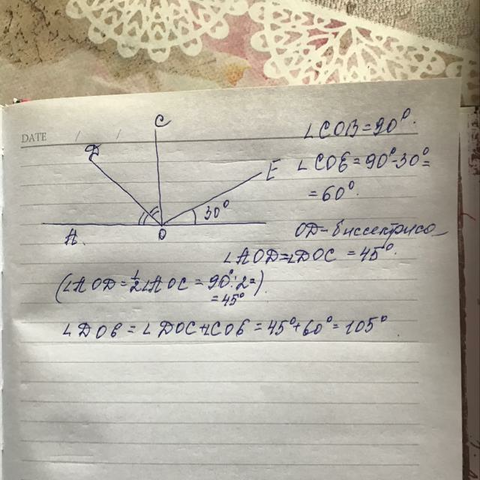 DATE / /
C
D
E
30°
A
O
∠COB=90°.
∠COE=90°-30°=
=60°.
OD-биссектриса
∠AOD=∠DOC =45°.
(∠AOD=½∠AOC = 90°:2=)
=45°
∠DOE = ∠DOC+∠COE = 45°+60°=105°